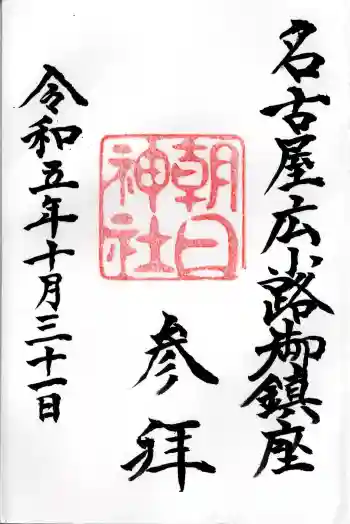 名古屋広小路御鎮座
朝日神社
参拝
令和五年十月三十一日